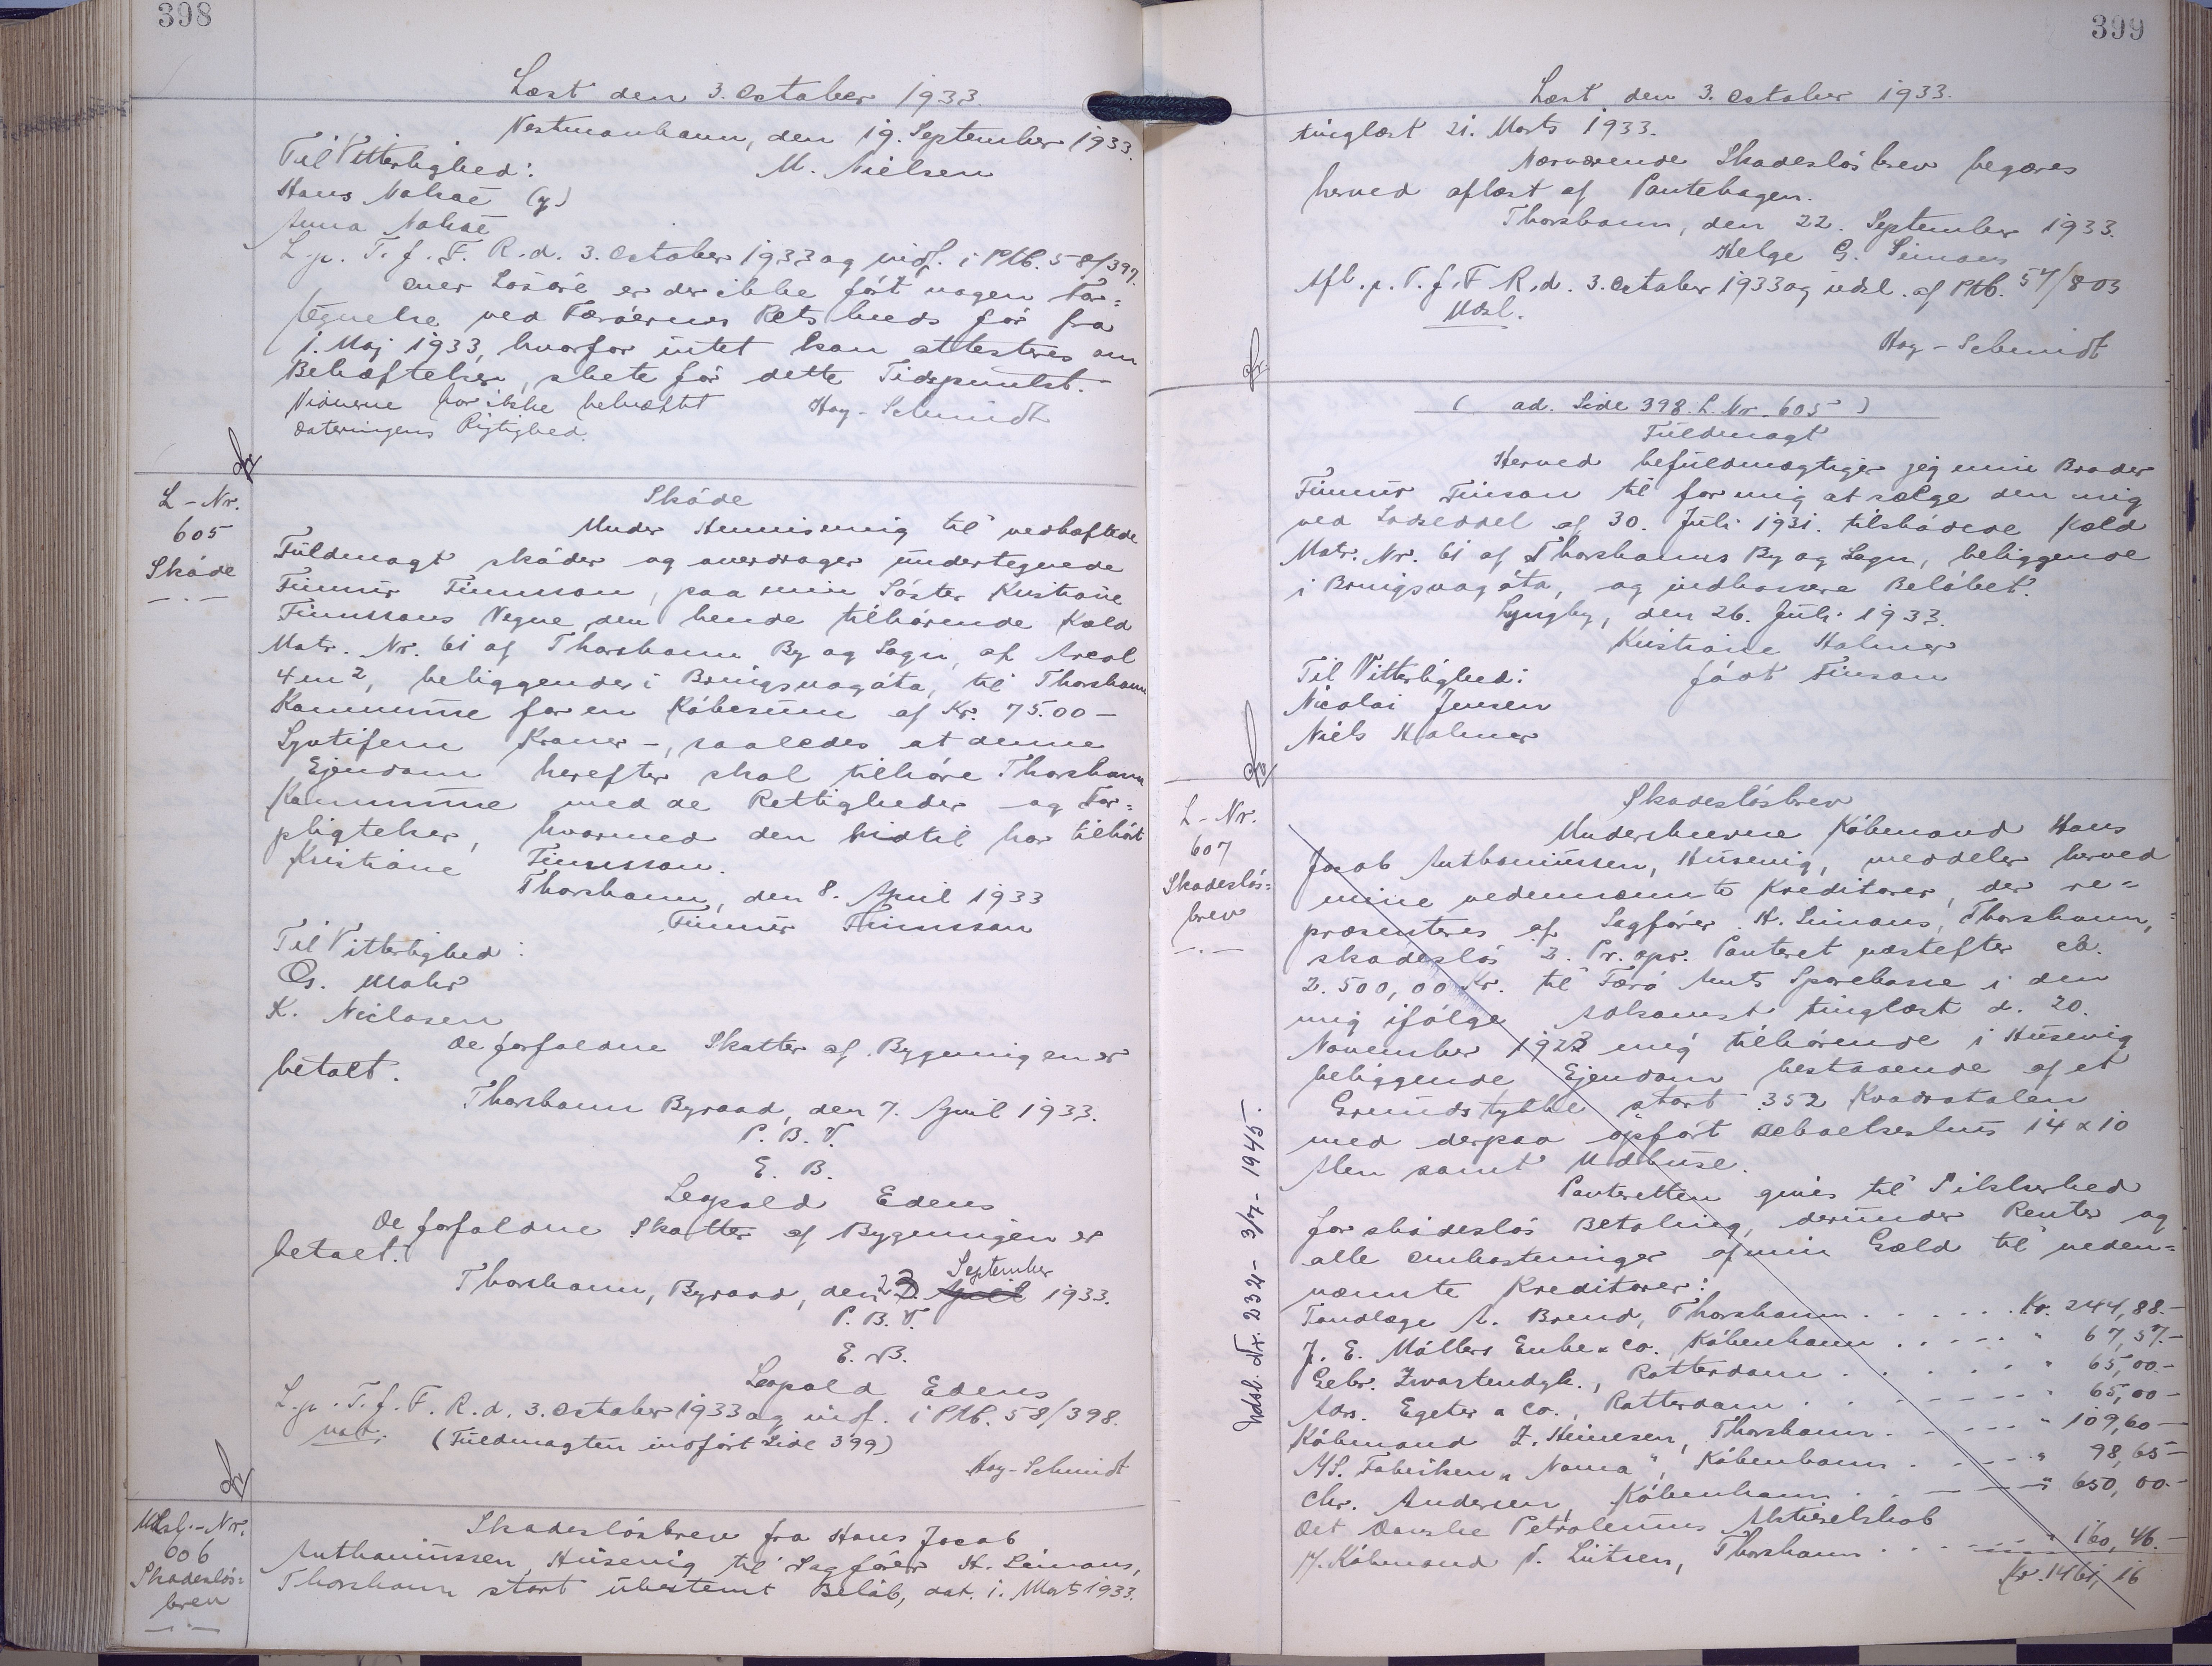 398
Læst den 3. October 1933.
Vestmanhavn, den 19. September 1933.
Til Vitterlighed: M. Nielsen
Hans Nolsøe (y)
Anna Nolsøe
L. p. T. f. F. R. d. 3. October 1933 og indf. i Ptb. 58/397.
Over Løsøre er der ikke ført nogen For=
tegnelse ved Færøernes Retskreds før fra
1. Maj 1933, hvorfor intet kan attesteres om
Behæftelser, skete før dette Tidspunkt.-
Vidnerne har ikke bekræftet Hoy-Schmidt
Dateringens Rigtighed.
L-Nr.
605
Skøde
Skøde
Under Henvisning til vedhæftede
Fuldmagt skøder og overdrager undertegnede
Finnur Finnsson, paa min Søster Kristiane
Finnssons Vegne den hende tilhørende Kæld
Matr. Nr. 61 af Thorshavn By og Sogn, af Areal
4 m2, beliggende i Bringsnagøta, til Thorshavn
Kommune for en Købesum af Kr. 75.00 -
Syvtifem Kroner -, saaledes at denne
Ejendom herefter skal tilhøre Thorshavn
Kommune med de Rettigheder og For=
pligtelser, hvormed den hidtil har tilhørt
Kristiane Finnsson.
Thorshavn, den 8. April 1933
Finnur Finnsson
Til Vitterlighed:
O. Mohr
K. Niclasen
De forfaldne Skatter af Bygningen er
betalt.
Thorshavn Byraad, den 7. April 1933.
P. B. V.
E. B.
Leopold Edens
De forfaldne Skatter af Bygningen er
betalt.
Thorshavn, Byraad, den 23. April September 1933.
P. B. V.
E. B.
Leopold Edens
L. p. T. f. F. R. d. 3. October 1933 og indf. i Ptb. 58/398.
not. (Fuldmagten indført Side 399)
Hoy-Schmidt
Udsl.-Nr.
606
Skadesløs=
brev
Skadesløsbrev fra Hans Jacob
Anthoniussen, Húsevig til Sagfører H. Simons,
Thorshavn stort ubestemt Beløb, dat. 1. Marts 1933.
399
Læst den 3. October 1933.
tinglæst 21. Marts 1933.
Nærværende Skadesløsbrev begæres
herved aflæst af Pantebogen.
Thorshavn, den 22. September 1933.
Helge G. Simons
Afl. p. T. f. F. R. d. 3. October 1933 og udsl. af Ptb. 57/803
Udsl.
Hoy-Schmidt
( ad. Side 398. L. Nr. 605 )
Fuldmagt
Herved befuldmægtiger jeg min Broder
Finnur Finson til for mig at sælge den mig
ved Lodseddel af 30. Juli 1931. tilskødede Kæld
Matr. Nr. 61 af Thorshavns By og Sogn, beliggende
i Bringsnagøta, og indkassere Beløbet.
Lyngby, den 26. Juli 1933.
Kristiane Holmer
Til Vitterlighed: født Finson
Nicolai Jensen
Niels Holmer
L-Nr.
607
Skadesløs=
brev
Udsl. Nr. 232 - 3/7 - 1945.
Skadesløsbrev
Underskrevne Købmand Hans
Jacob Anthoniussen, Húsevig, meddeler herved
mine nedennævnte Kreditorer, der re=
præsenteres af Sagfører H. Simons, Thorshavn,
skadesløs 3. Pr. opr. Panteret næstefter cb.
2.500,00 Kr. til Færø Amts Sparekasse i den
mig ifølge Adkomst tinglæst d. 20.
November 1923 mig tilhørende i Húsevig
beliggende Ejendom bestaaende af et
Grundstykke stort 352 Kvadratalen
med derpaa opført Beboelseshus 14 x 10
Alen samt Udhuse.
Panteretten gives til Sikkerhed
for skadesløs Betaling, derunder Renter og
alle Omkostninger af min Gæld til neden=
nævnte Kreditorer:
Tandlæge A. Brend, Thorshavn . . . . . . Kr. 244,88.-
J. E. Møllers Enke & Co. København . . . . . " 67,57.-
Gebr. Zwartendyk., Rotterdam . . . . . . " 65,00.-
Adr. Egeter & Co., Rotterdam . . - - - - " 65,00 -
Købmand Z. Heinesen, Thorshavn . - - - - " 109,60 -
A/S. Fabriken „Noma", København . - - - . " 98,65 -
Chr. Andersen, København . . - - - " 650,00.-
Det Danske Petroleums Aktieselskab
v/. Købmand D. Lútzen, Thorshavn . . . - - - " 160,46.-
Kr. 1461,16